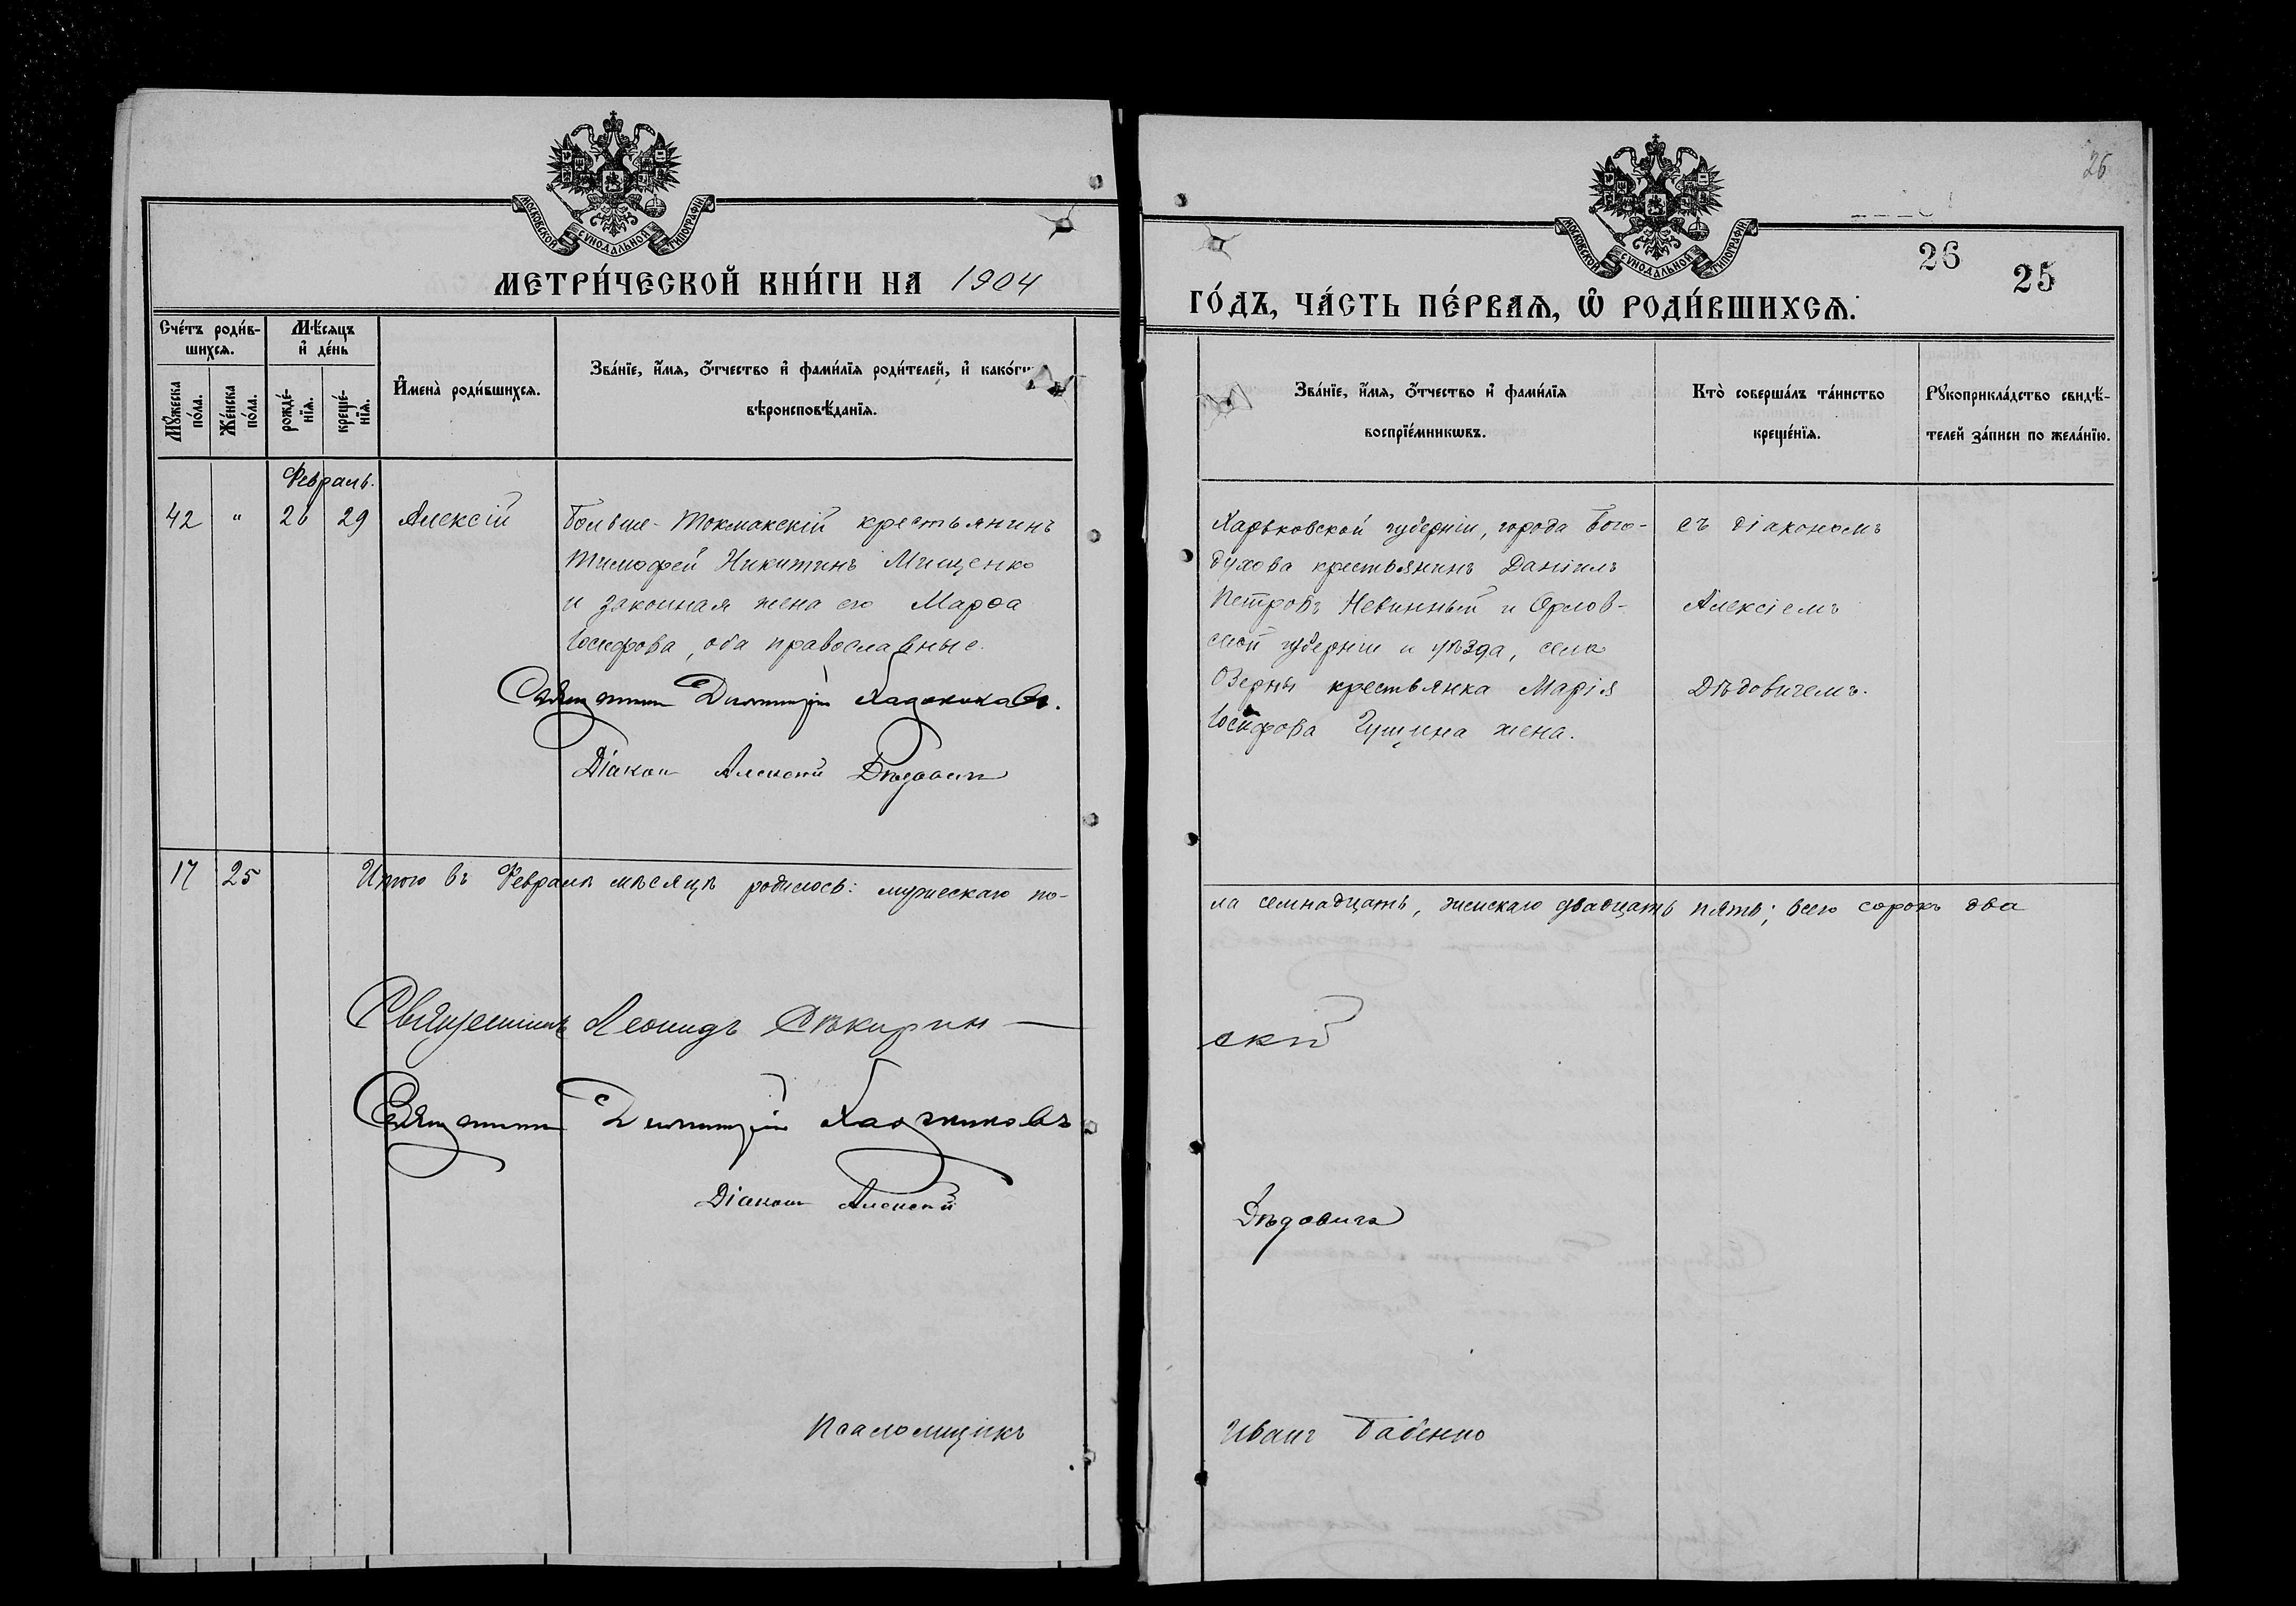 МОСКОВСКОЙ СѴНОДАЛЬНОЙ ТИПОГРАФІИ
МЕТРИ́ЧЕСКОЙ КНИ́ГИ НА 1904
Сче́тъ роди́в-
шихсѧ.
Мѣ́сѧцъ
и҆ де́нь
Мꙋ́жеска
по́ла.
Же́нска
по́ла.
рожде́-
нїѧ.
креще́-
нїѧ.
И҆мена̀ роди́вшихсѧ.
Зва́нїе, и҆́мѧ, ѻ҆́тчество и҆ фами́лїѧ роди́телей, и҆ како́гѡ
вѣроисповѣ́данїѧ.
Февраль.
42 " 26 29 Алексій
Больше-Токмакскій крестьянинъ
Тимофей Никитинъ Мищенко
и законная жена его Марѳа
Іосифова, оба православные.
Священникъ Димитрій
Діаконъ Алексій Дѣдовичъ
17 25 Итого въ Февралѣ мѣсяцѣ родилось: мужескаго по-
Священникъ Леонидъ Сѣкирин-
Священникъ Димитрій
Діаконъ Алексій
Псаломщикъ
26
МОСКОВСКОЙ СѴНОДАЛЬНОЙ ТИПОГРАФІИ
26 25
ГО́ДЪ, ЧА́СТЬ ПЕ́РВАѦ, Ѡ҆ РОДИ́ВШИХСѦ.
Зва́нїе, и҆́мѧ, ѻ҆́тчество и҆ фами́лїѧ
воспрїе́мникѡвъ.
Кто̀ соверша́лъ та́инство
креще́нїѧ.
Рꙋкоприкла́дство свидѣ́-
телей за́писи по жела́нїю.
Харьковской губерніи, города Бого-
духова крестьянинъ Даніилъ
Петровъ Невинный и Орлов-
ской губерніи и уѣзда, села
Озерны крестьянка Марія
Іосифова Гущина жена.
съ діакономъ
Алексіемъ
Дѣдовичемъ.
ла семнадцать, женскаго двадцать пять; всего сорокъ два
скій
Дѣдовичъ
Иванъ Бабенко